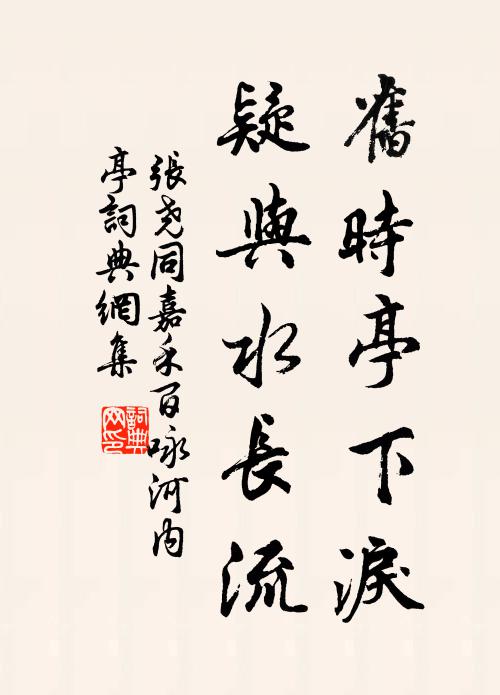 舊時亭下淚
疑與水長流
張堯同嘉禾百咏河内
亭詞典網集
詞典网印